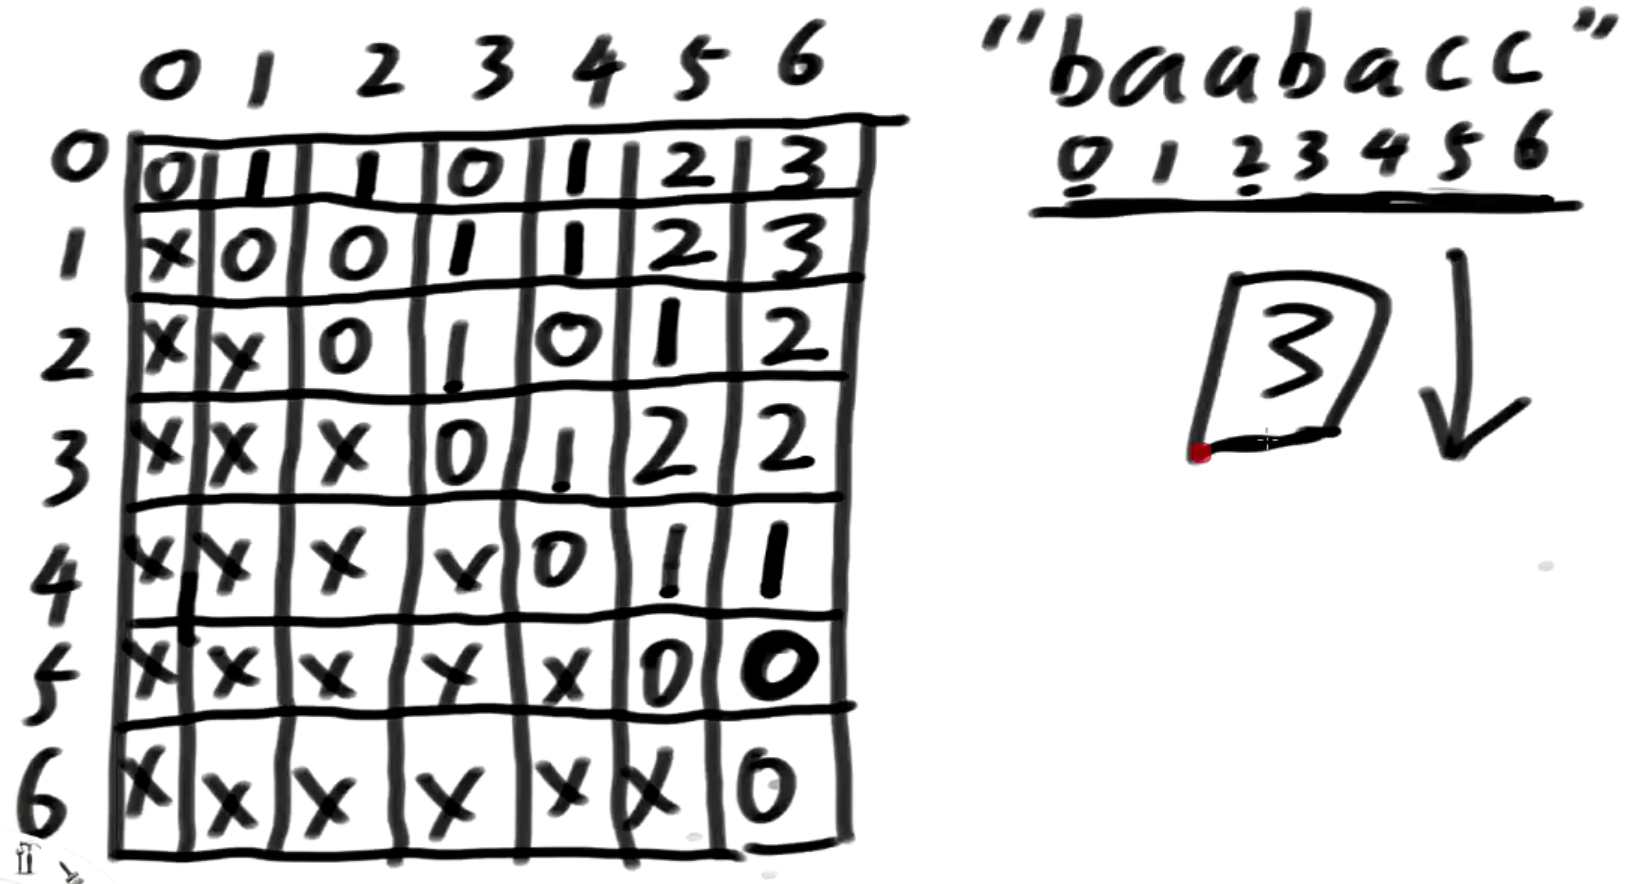 0 1 2 3 4 5 6
0 0 1 1 0 1 2 3
1 x 0 0 1 1 2 3
2 x x 0 1 0 1 2
3 x x x 0 1 2 2
4 x x x x 0 1 1
5 x x x x x 0 0
6 x x x x x x 0
"baabacc"
0 1 2 3 4 5 6
3